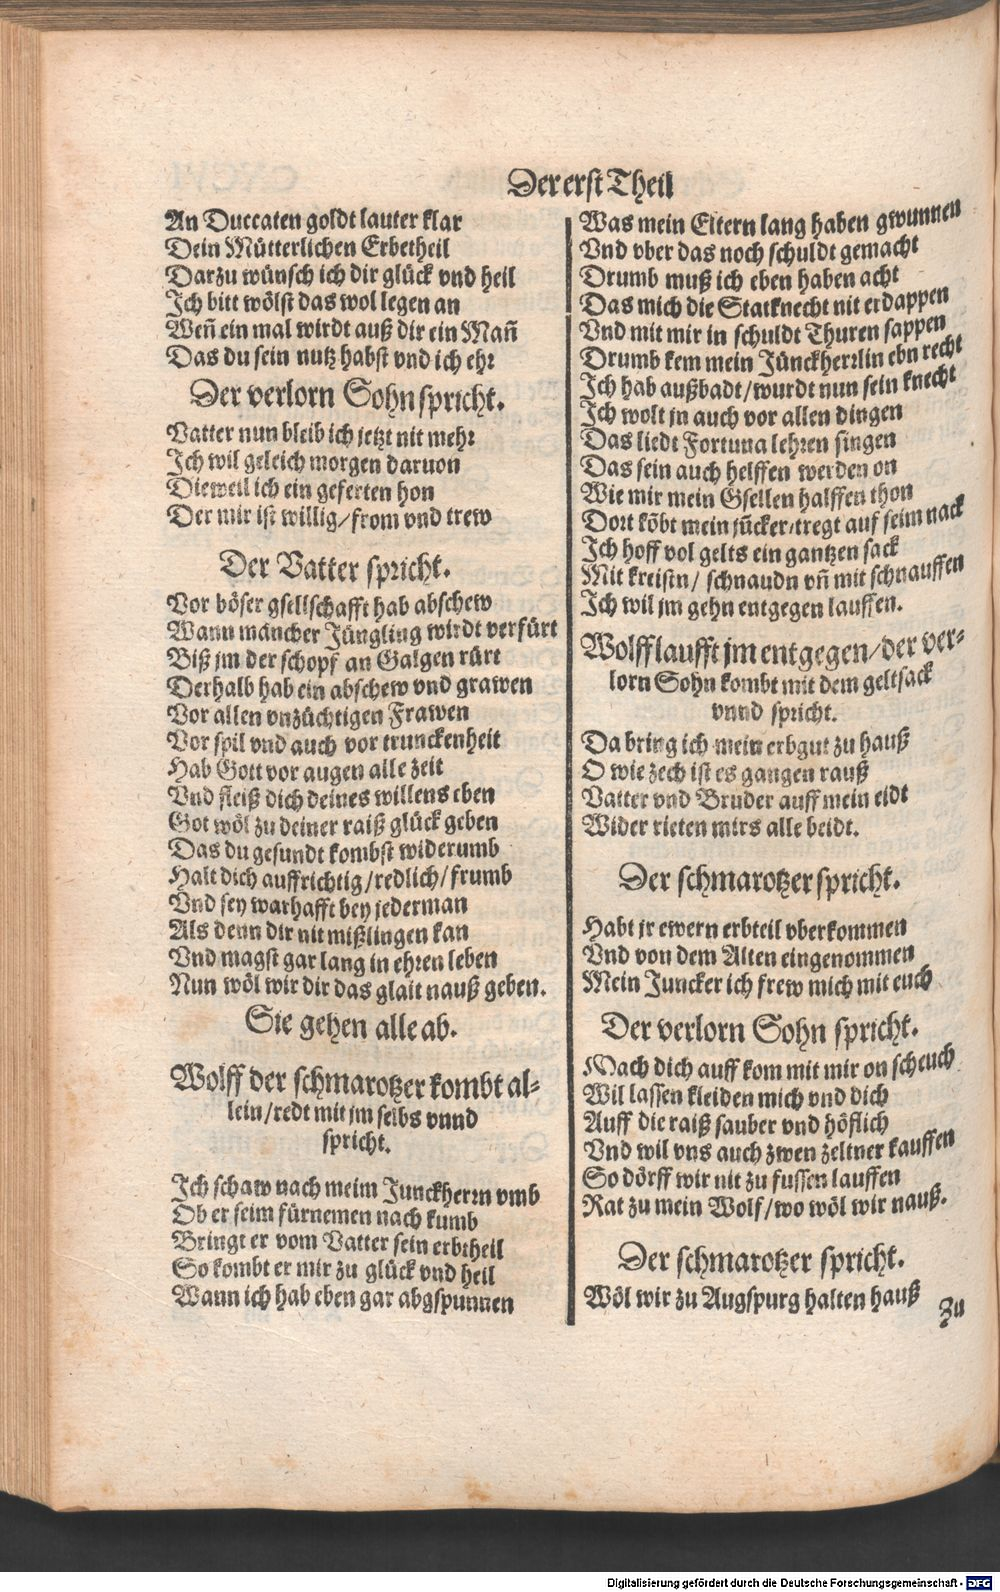 Der erst Theil
An Duccaten goldt lauter klar
Dein Mütterlichen Erbetheil
Darzu wünsch ich dir glück vnd heil
Ich bitt wölst das wol legen an
Weñ ein mal wirdt auß dir ein Mañ
Das du sein nutz habst vnd ich ehr
Der verlorn Sohn spricht.
Vatter nun bleib ich jetzt nit mehr
Ich wil geleich morgen daruon
Dieweil ich ein geferten hon
Der mir ist willig/from vnd trew
Der Vatter spricht.
Vor böser gsellschafft hab abschew
Wann mancher Jüngling wirdt verfürt
Biß jm der schopf an Galgen rürt
Derhalb hab ein abschew vnd grawen
Vor allen vnzüchtigen Frawen
Vor spil vnd auch vor trunckenheit
Hab Gott vor augen alle zeit
Vnd fleiß dich deines willens eben
Got wöl zu deiner raiß glück geben
Das du gesundt kombst widerumb
Halt dich auffrichtig/redlich/frumb
Vnd sey warhafft bey jederman
Als denn dir nit mißlingen kan
Vnd magst gar lang in ehren leben
Nun wöl wir dir das glait nauß geben.
Sie gehen alle ab.
Wolff der schmarotzer kombt al-
lein/redt mit jm selbs vnnd
spricht.
Ich schaw nach meim Junckherrn vmb
Ob er seim fürnemen nach kumb
Bringt er vom Vatter sein erbtheil
So kombt er mir zu glück vnd heil
Wann ich hab eben gar abgspunnen
Was mein Eltern lang haben gwunnen
Vnd vber das noch schuldt gemacht
Drumb muß ich eben haben acht
Das mich die Statknecht nit erdappen
Vnd mit mir in schuldt Thuren sappen
Drumb kem mein Jünckherrlin ebn recht
Ich hab außbadt/wurdt nun sein knecht
Ich wolt jn auch vor allen dingen
Das liedt Fortuna lehren singen
Das sein auch helffen werden on
Wie mir mein Gsellen halffen thon
Dort kõbt mein jũcker/tregt auf seim nack
Ich hoff vol gelts ein gantzen sack
Mit kreistn/ schnaudn vñ mit schnauffen
Ich wil jm gehn entgegen lauffen.
Wolff laufft jm entgegen/der ver-
lorn Sohn kombt mit dem geltsack
vnnd spricht.
Da bring ich mein erbgut zu hauß
O wie zech ist es gangen rauß
Vatter vnd Bruder auff mein eidt
Wider rieten mirs alle beidt.
Der schmarotzer spricht.
Habt jr ewern erbteil vberkommen
Vnd von dem Alten eingenommen
Mein Juncker ich frew mich mit euch
Der verlorn Sohn spricht.
Mach dich auff kom mit mir on scheuch
Wil lassen kleiden mich vnd dich
Auff die raiß sauber vnd höflich
Vnd wil vns auch zwen zeltner kauffen
So dörff wir nit zu fussen lauffen
Rat zu mein Wolf/wo wöl wir nauß.
Der schmarotzer spricht.
Wöl wir zu Augspurg halten hauß
Zu
Digitalisierung gefördert durch die Deutsche Forschungsgemeinschaft - DFG